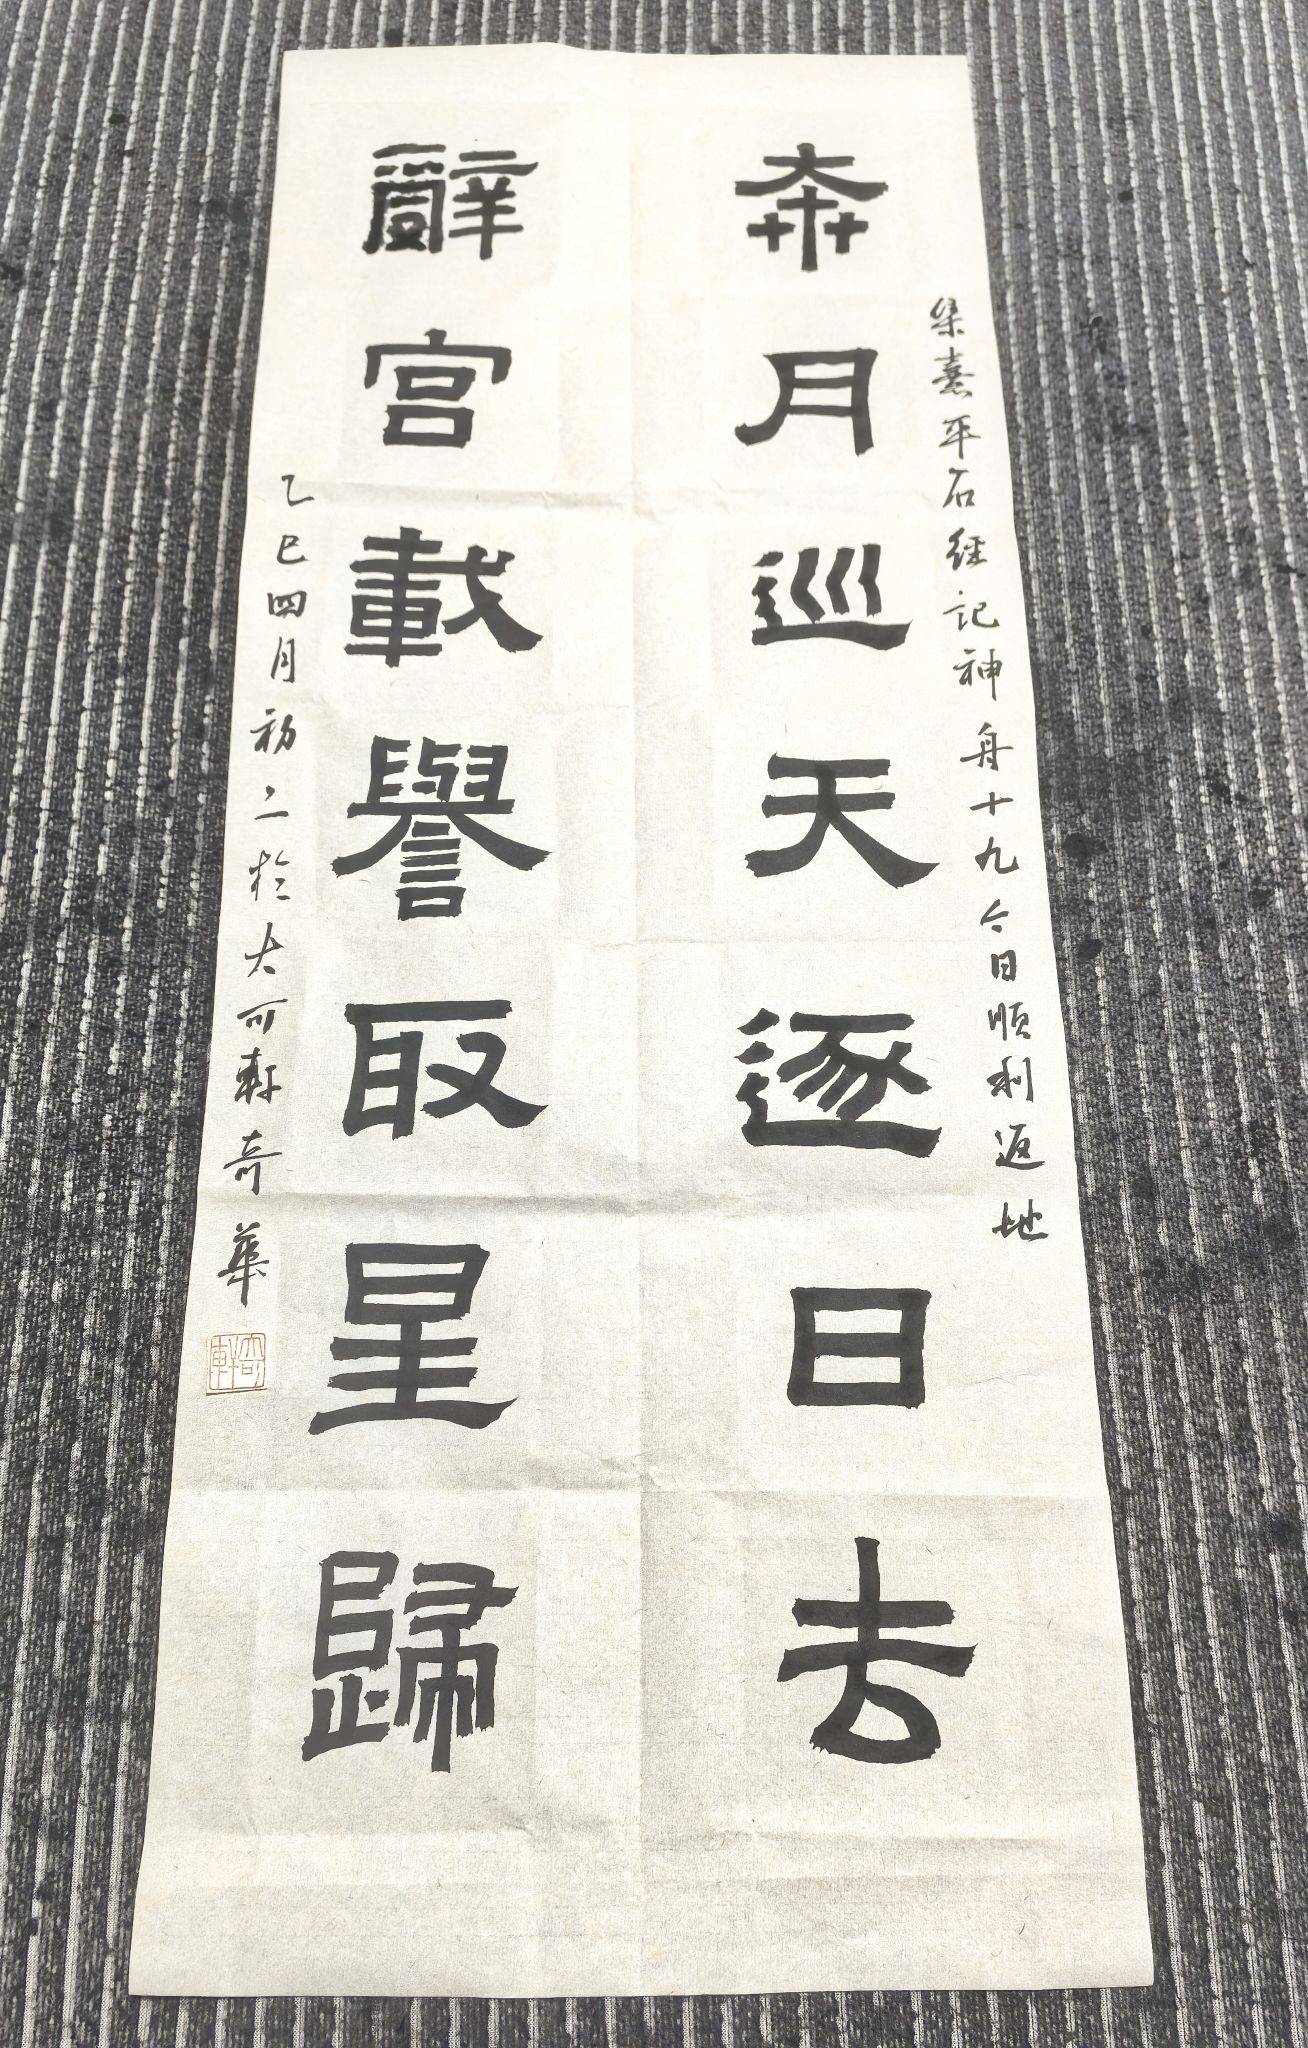 奔月巡天逐日去
集熹平石經記神舟十九今日順利返地
辭宮載譽取星歸
乙巳四月初二於大可軒奇華